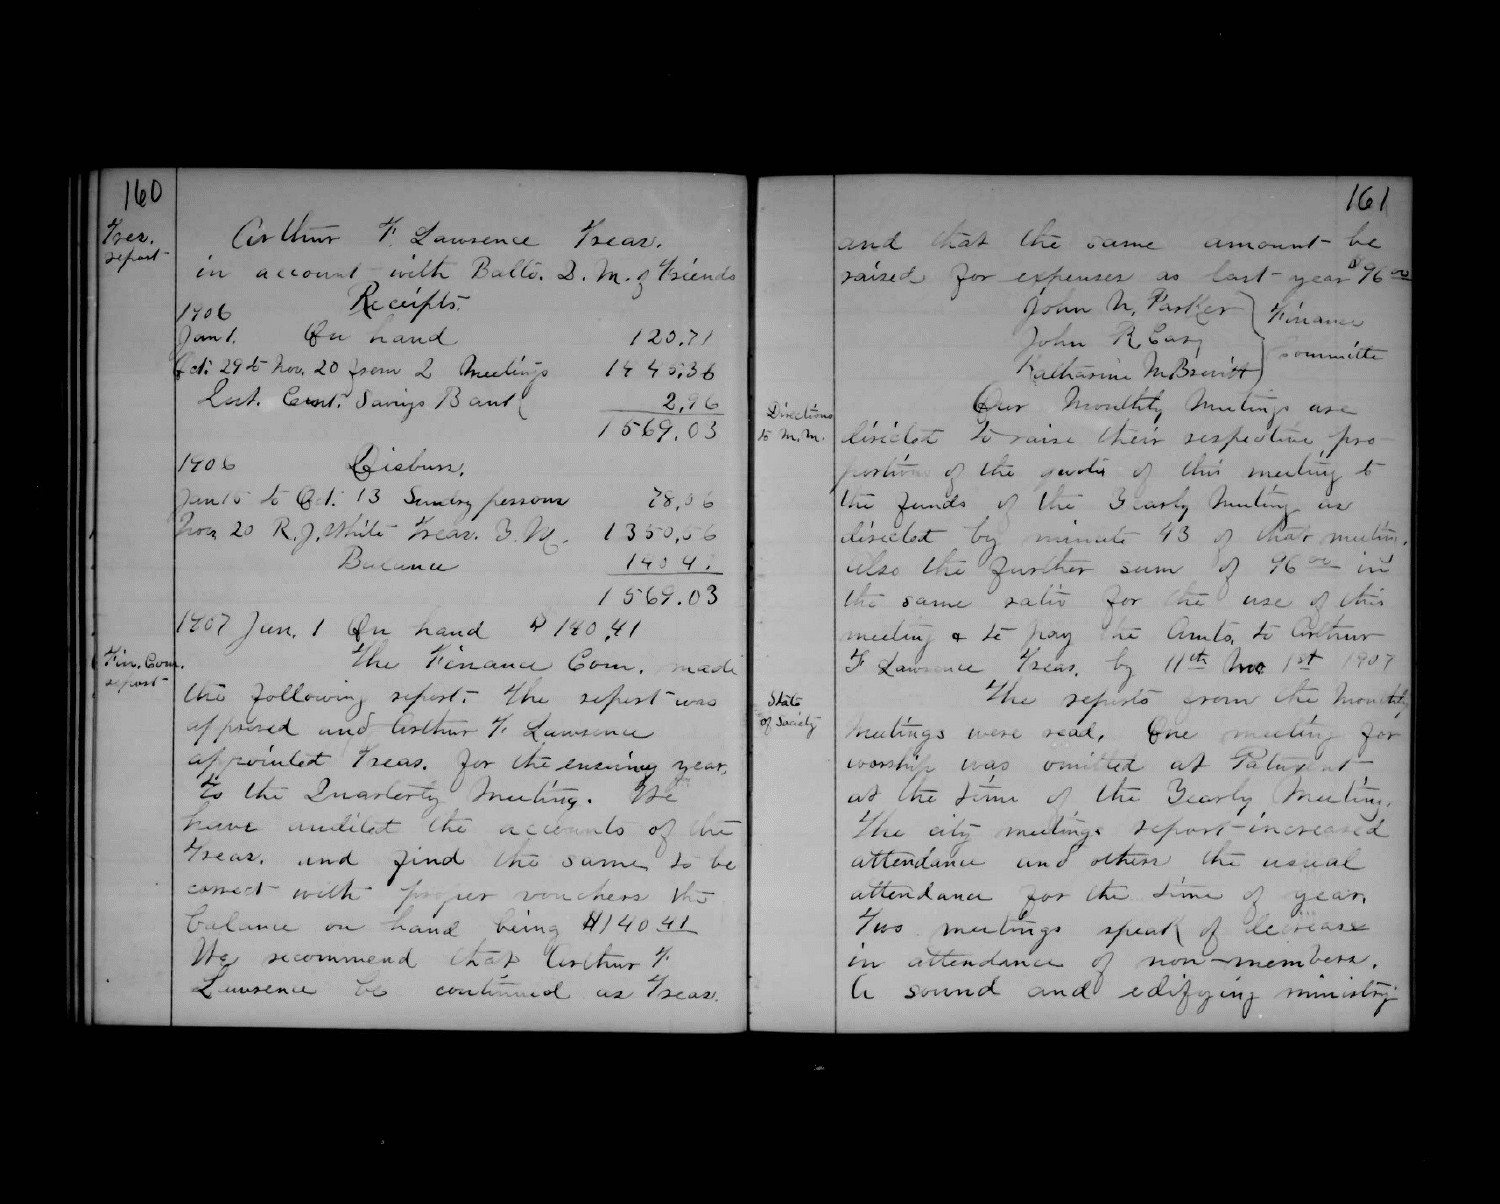 160
Tres.
report
Arthur F. Lawrence Treas.
in account with Balto. Q. M. of Friends
Receipts.
1906
Jan 1. On hand 120.71
Oct. 29 to Nov. 20 from 2 Meetings 1445.36
Int. Cent. Savings Bank 2.96
1569.03
1906 Disburs.
Jan 15 to Oct. 13 Sundry persons 78.06
Nov. 20 R. J. White Treas. Y. M. 1350.56
Balance 140 41.
1569.03
1907 Jan. 1 On hand $140.41
Fin. Com.
report
The Finance Com. made
the following report. The report was
approved and Arthur F. Lawrence
appointed Treas. for the ensuing year.
To the Quarterly Meeting. We
have audited the accounts of the
Treas. and find the same to be
correct with proper vouchers the
balance on hand being $140 41
We recommend that Arthur F.
Lawrence be continued as Treas.
161
and that the same amount be
raised for expenses as last year $96 00
John N. Parker
John R. Cary
Katharine M. Brevitt
Finance
Committe
Directions
to M. M.
Our Monthly Meetings are
directed to raise their respective pro-
portion of the quota of this meeting to
the funds of the Yearly Meeting as
directed by minute 43 of that meeting.
Also the further sum of 96 00 in
the same ratio for the use of this
meeting & to pay the Amts. to Arthur
F Lawrence Treas. by 11th Mo 1st 1907
State
of Society
The reports from the Monthly
Meetings were read. One meeting for
worship was omitted at Patuxent
at the time of the Yearly Meeting.
The city meetings report increased
attendance and others the usual
attendance for the time of year.
Two meetings speak of decrease
in attendance of non-members.
A sound and edifying ministry